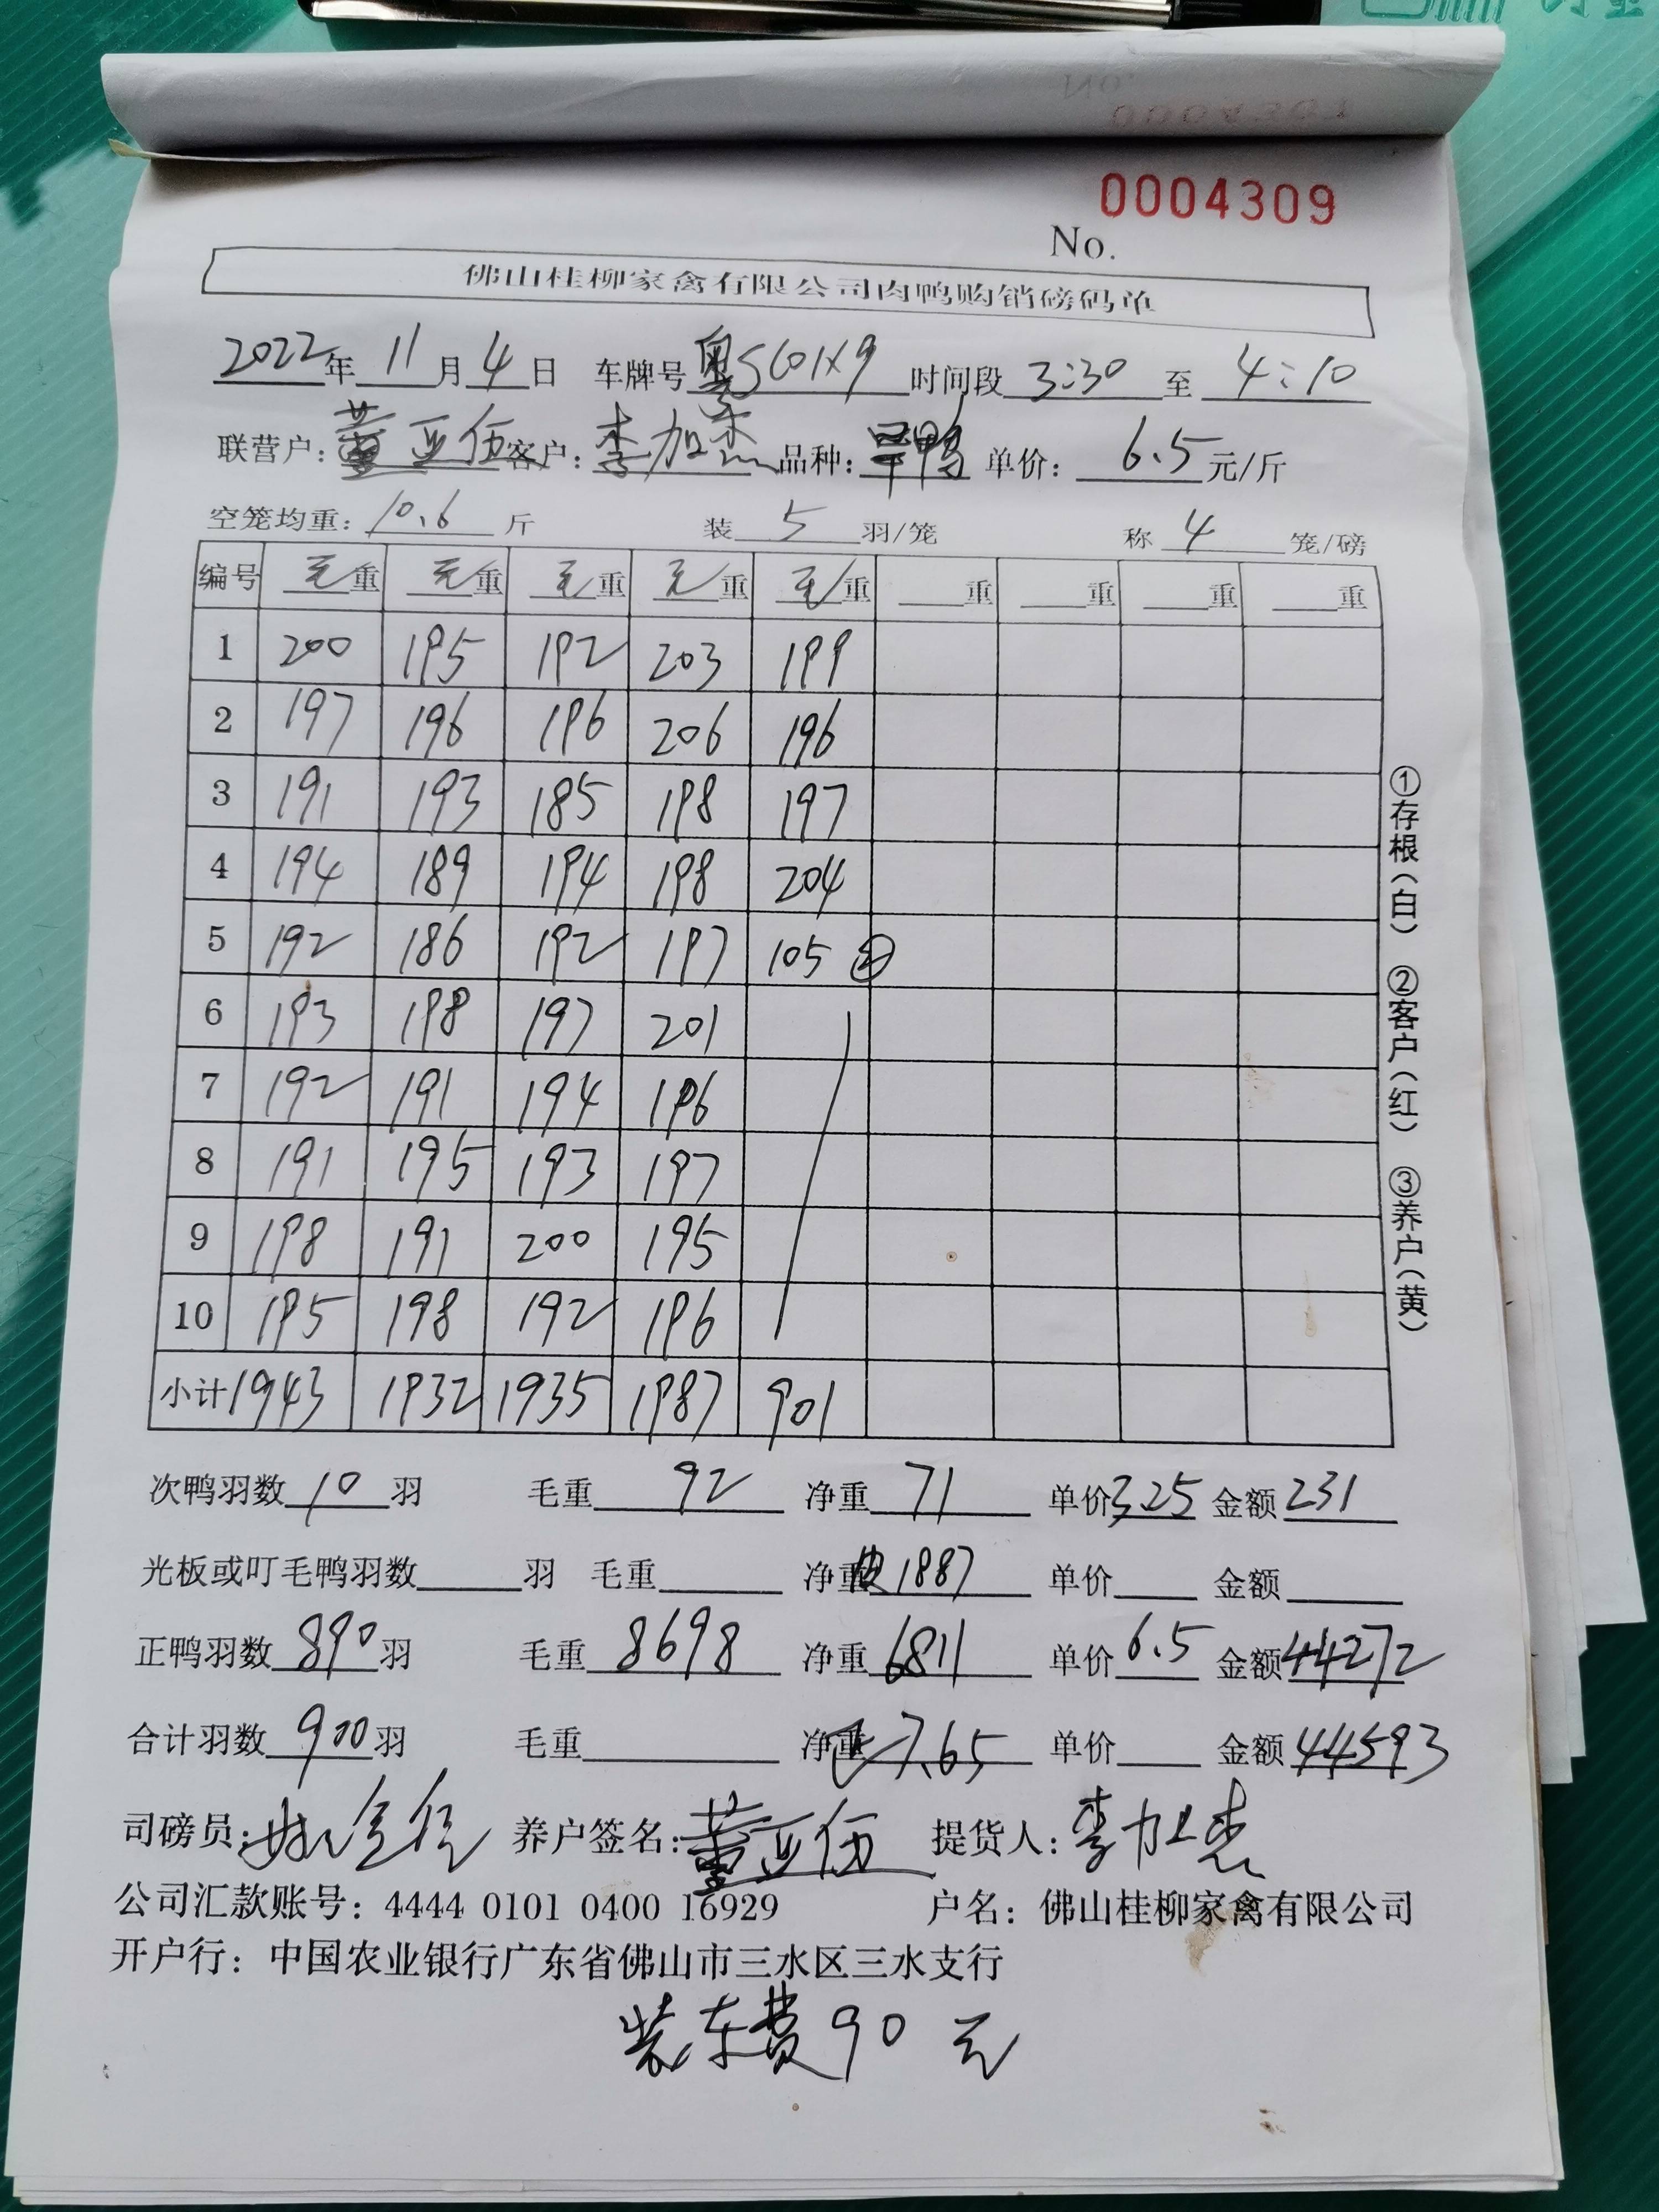 0004309
No.
佛山桂柳家禽有限公司肉鸭购销磅码单
2022年 11月 4日 车牌号 粤SC01X9 时间段 3:30 至 4:10
联营户: 董亚伍 客户: 李加杰 品种: 旱鸭 单价: 6.5 元/斤
空笼均重: 10.6 斤 装 5 羽/笼 称 4 笼/磅
编号 毛重 毛重 毛重 毛重 毛重 重 重 重 重
1 200 195 192 203 199
2 197 196 196 206 196
3 191 193 185 198 197
4 194 189 194 198 204
5 192 186 192 197 105 ②
6 193 198 197 201
7 192 191 194 196
8 191 195 193 197
9 198 191 200 195
10 195 198 192 196
小计 1943 1932 1935 1987 901
次鸭羽数 10 羽 毛重 92 净重 71 单价 3.25 金额 231
光板或叮毛鸭羽数 羽 毛重 净重 皮1887 单价 金额
正鸭羽数 890 羽 毛重 8698 净重 6811 单价 6.5 金额 44272
合计羽数 900 羽 毛重 净重 7.65 单价 金额 44593
司磅员: 养户签名: 董亚伍 提货人: 李加杰
公司汇款账号: 4444 0101 0400 16929 户名: 佛山桂柳家禽有限公司
开户行: 中国农业银行广东省佛山市三水区三水支行
装车费90元
①存根(白) ②客户(红) ③养户(黄)